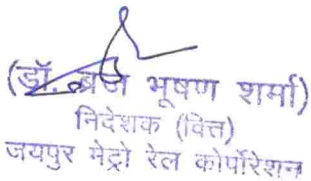 (डॉ. ब्रज भूषण शर्मा)
निदेशक (वित्त)
जयपुर मेट्रो रेल कोर्पोरेशन